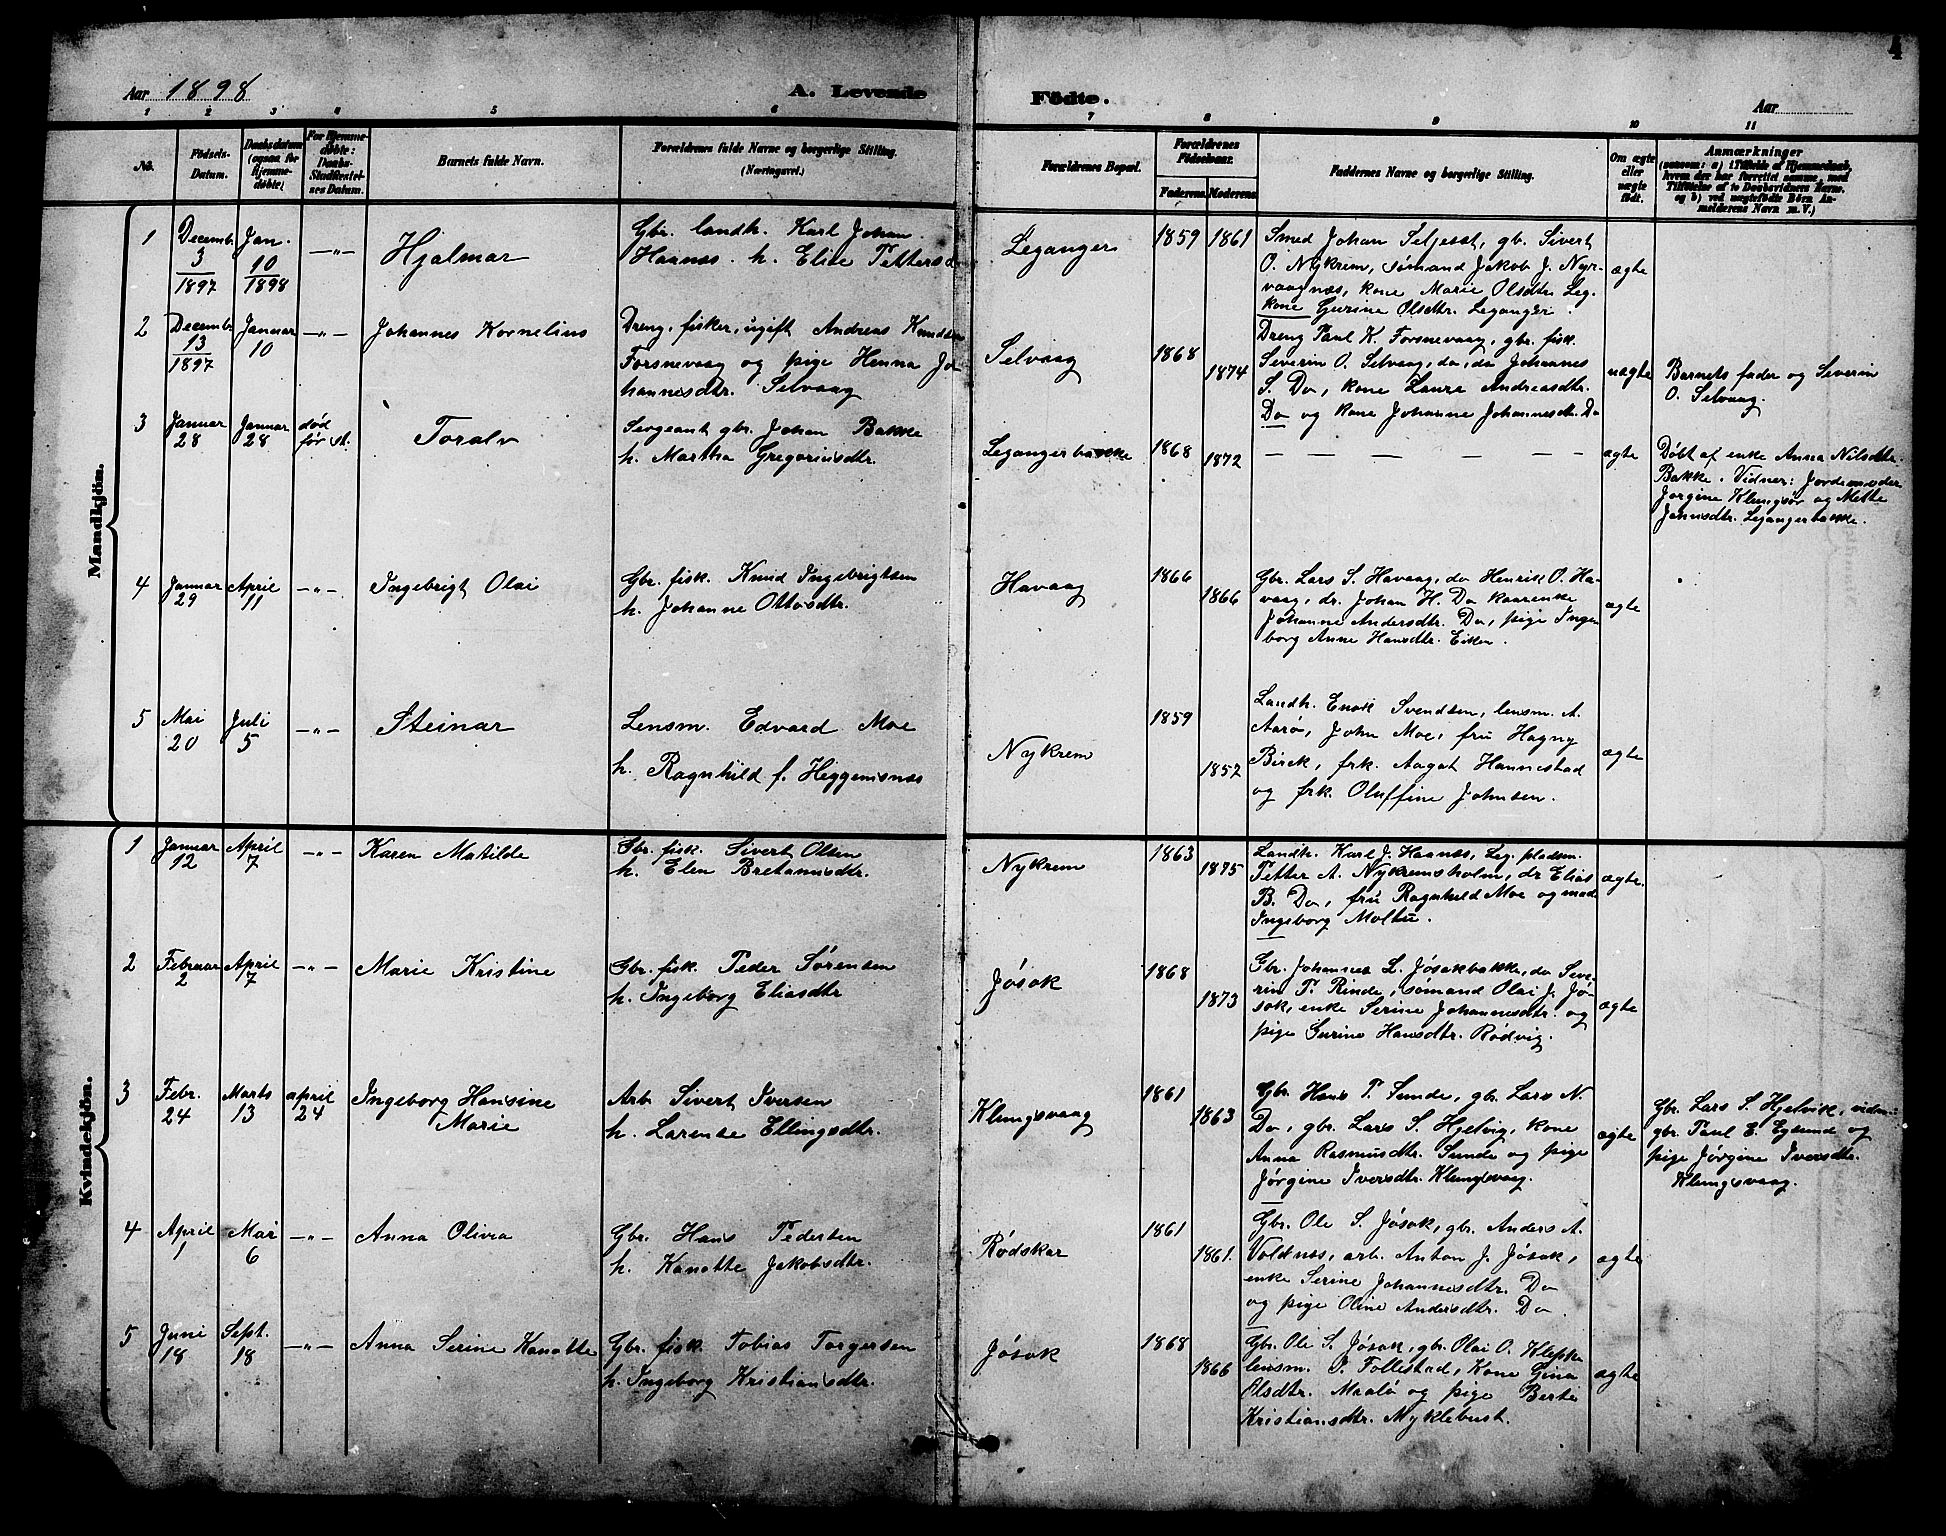 4
Aar 1898
A. Levende
Födte.
Aar
1 2 3 4 5 6 7 8 9 10 11
No.
Födsels-Datum.
Daabsdatum (ogsaa for Hjemme-døbte)
For Hjemme-døbte: Daabs-Stadfæstel-ses Datum.
Barnets fulde Navn.
Forældrenes fulde Navne og borgerlige Stilling.
(Næringsvei.)
Forældrenes Bopæl.
Forældrenes Födselsaar.
Faderens Moderens
Faddernes Navne og borgerlige Stilling.
Om ægte eller uægte født.
Anmærkninger
(saasom: a) i Tilfælde af Hjemmedaab, hvem der har forrettet samme, med Tilföielse af to Daabsvidners Navne, og b) ved uægtefödte Börn An-melderens Navn m. V.)
Mandkjön.
1
Decemb. 3 1897
Jan. 10 1898
—"—
Hjalmar
Gbr. landh. Karl Johan
Haanæs. h. Elise Pettersd
Leganger
1859 1861
Smed Johan Seljeset, gb. Sivert
O. Nykrem, sømand Jakob J. Nyr-
vaagnæs, kone Marie Olsdtr. Leg.
kone Gurine Olsdtr. Leganger.
ægte
2
Decemb 13 1897
Januar 10
—"—
Johannes Kornelius
Dreng, fisker, ugift Andreas Knudsen
Forsnevaag og pige Henna Jo-
hannesdtr. Selvaag
Selvaag
1868
1874
Dreng Paul K. Forsnevaag, gbr. fisk.
Severin O. Selvaag, do, do Johannes
S. Do, kone Laura Andreasdtr.
Do og kone Johanne Johannesdtr. Do
uægte
Barnets fader og Severin
O. Selvaag.
3
Januar 28
Januar 28
død
før st.
Toralv
Sergeant gbr. Johan Bakke
h. Martha Gregoriusdtr.
Legangerbakke
1868
1872
— — — — — —
ægte
Døbt af enke Anna Nilsdtr.
Bakke. Vidner: Jordemoder
Jørgine Klungsør og Mette
Jonnsdtr. Legangerbakke.
4
Januar 29
April 11
—"—
Ingebrigt Olai
Gbr. fisk. Knud Ingebrigtsen
h. Johanne Ottosdtr.
Havaag
1866
1866
Gbr. Lars S. Havaag, do Henrik O. Ha-
vaag, dr. Johan H. Do kaarenke
Johanne Andersdtr. Do, pige Inge
borg Anne Hansdtr. Eiken.
ægte
5
Mai 20
Juli 5
—"—
Steinar
Lensm. Edvard Moe
h. Ragnhild f. Heggemsnæs
Nykrem
1859
1852
Landh. Enok Svendsen, lensm. A.
Aarø, John Moe, fru Hagny
Birck, frk. Aagot Hannestad
og frk. Oluffine Johnsen.
ægte
Kvindekjön.
1
Januar 12
April 7
—"—
Karen Matilde
Gbr. fisk. Sivert Olsen
h. Elen Bretanusdtr.
Nykrem
1863
1875
Landh. Karl J. Haanæs, Leg. pladsm.
Petter A. Nykremsholm, dr Elias
B. Do, fru Ragnhild Moe og mad.
Ingeborg Moltu.
ægte.
2
Februar 2
April 7
—"—
Marie Kristine
Gbr. fisk. Peder Sørensen
h. Ingeborg Eliasdtr
Jøsok
1868
1873
Gbr. Johannes L. Jøsokbakke, do Seve-
rin P. Rinde, sømand Olai J. Jø-
sok, enke Serine Johannesdtr. og
pige Gurine Hansdtr. Rødvig.
ægte
3
Febr. 24
Marts 13
april 24
Ingeborg Hansine
Marie
Arb. Sivert Iversen
h. Larense Ellingsdtr.
Klungsvaag
1861
1863
Gbr. Hans P. Sunde, gbr. Lars N.
Do, gbr. Lars S. Hjelvig, kone
Anna Rasmusdtr. Sunde og pige
Jørgine Iversdtr. Klungsvaag.
ægte
Gbr. Lars S. Hjelvik, vidn.:
gbr. Paul E. Egsund og
pige Jørgine Iversdtr.
Klungsvaag.
4
April 1
Mai 6
—"—
Anna Olivia
Gbr. Hans Pedersen
h. Kanutte Jakobsdtr.
Rødskar
1861
1861.
Gbr. Ole S. Jøsok, gbr. Anders A.
Voldnæs, arb. Anton J. Jøsok,
enke Serine Johannesdtr. Do
og pige Oline Andersdtr. Do.
ægte
5
Juni 18
Sept. 18
—"—
Anna Serine Kanutte
Gbr. fisk. Tobias Torgersen
h. Ingeborg Kristiansdtr.
Jøsok
1868
1866
Gbr. Ole S. Jøsok, gbr. Olai O. Kleppe
lensm. P. Follestad, kone Gina
Olsdtr. Maalø og pige Berte
Kristiansdtr. Myklebust.
ægte